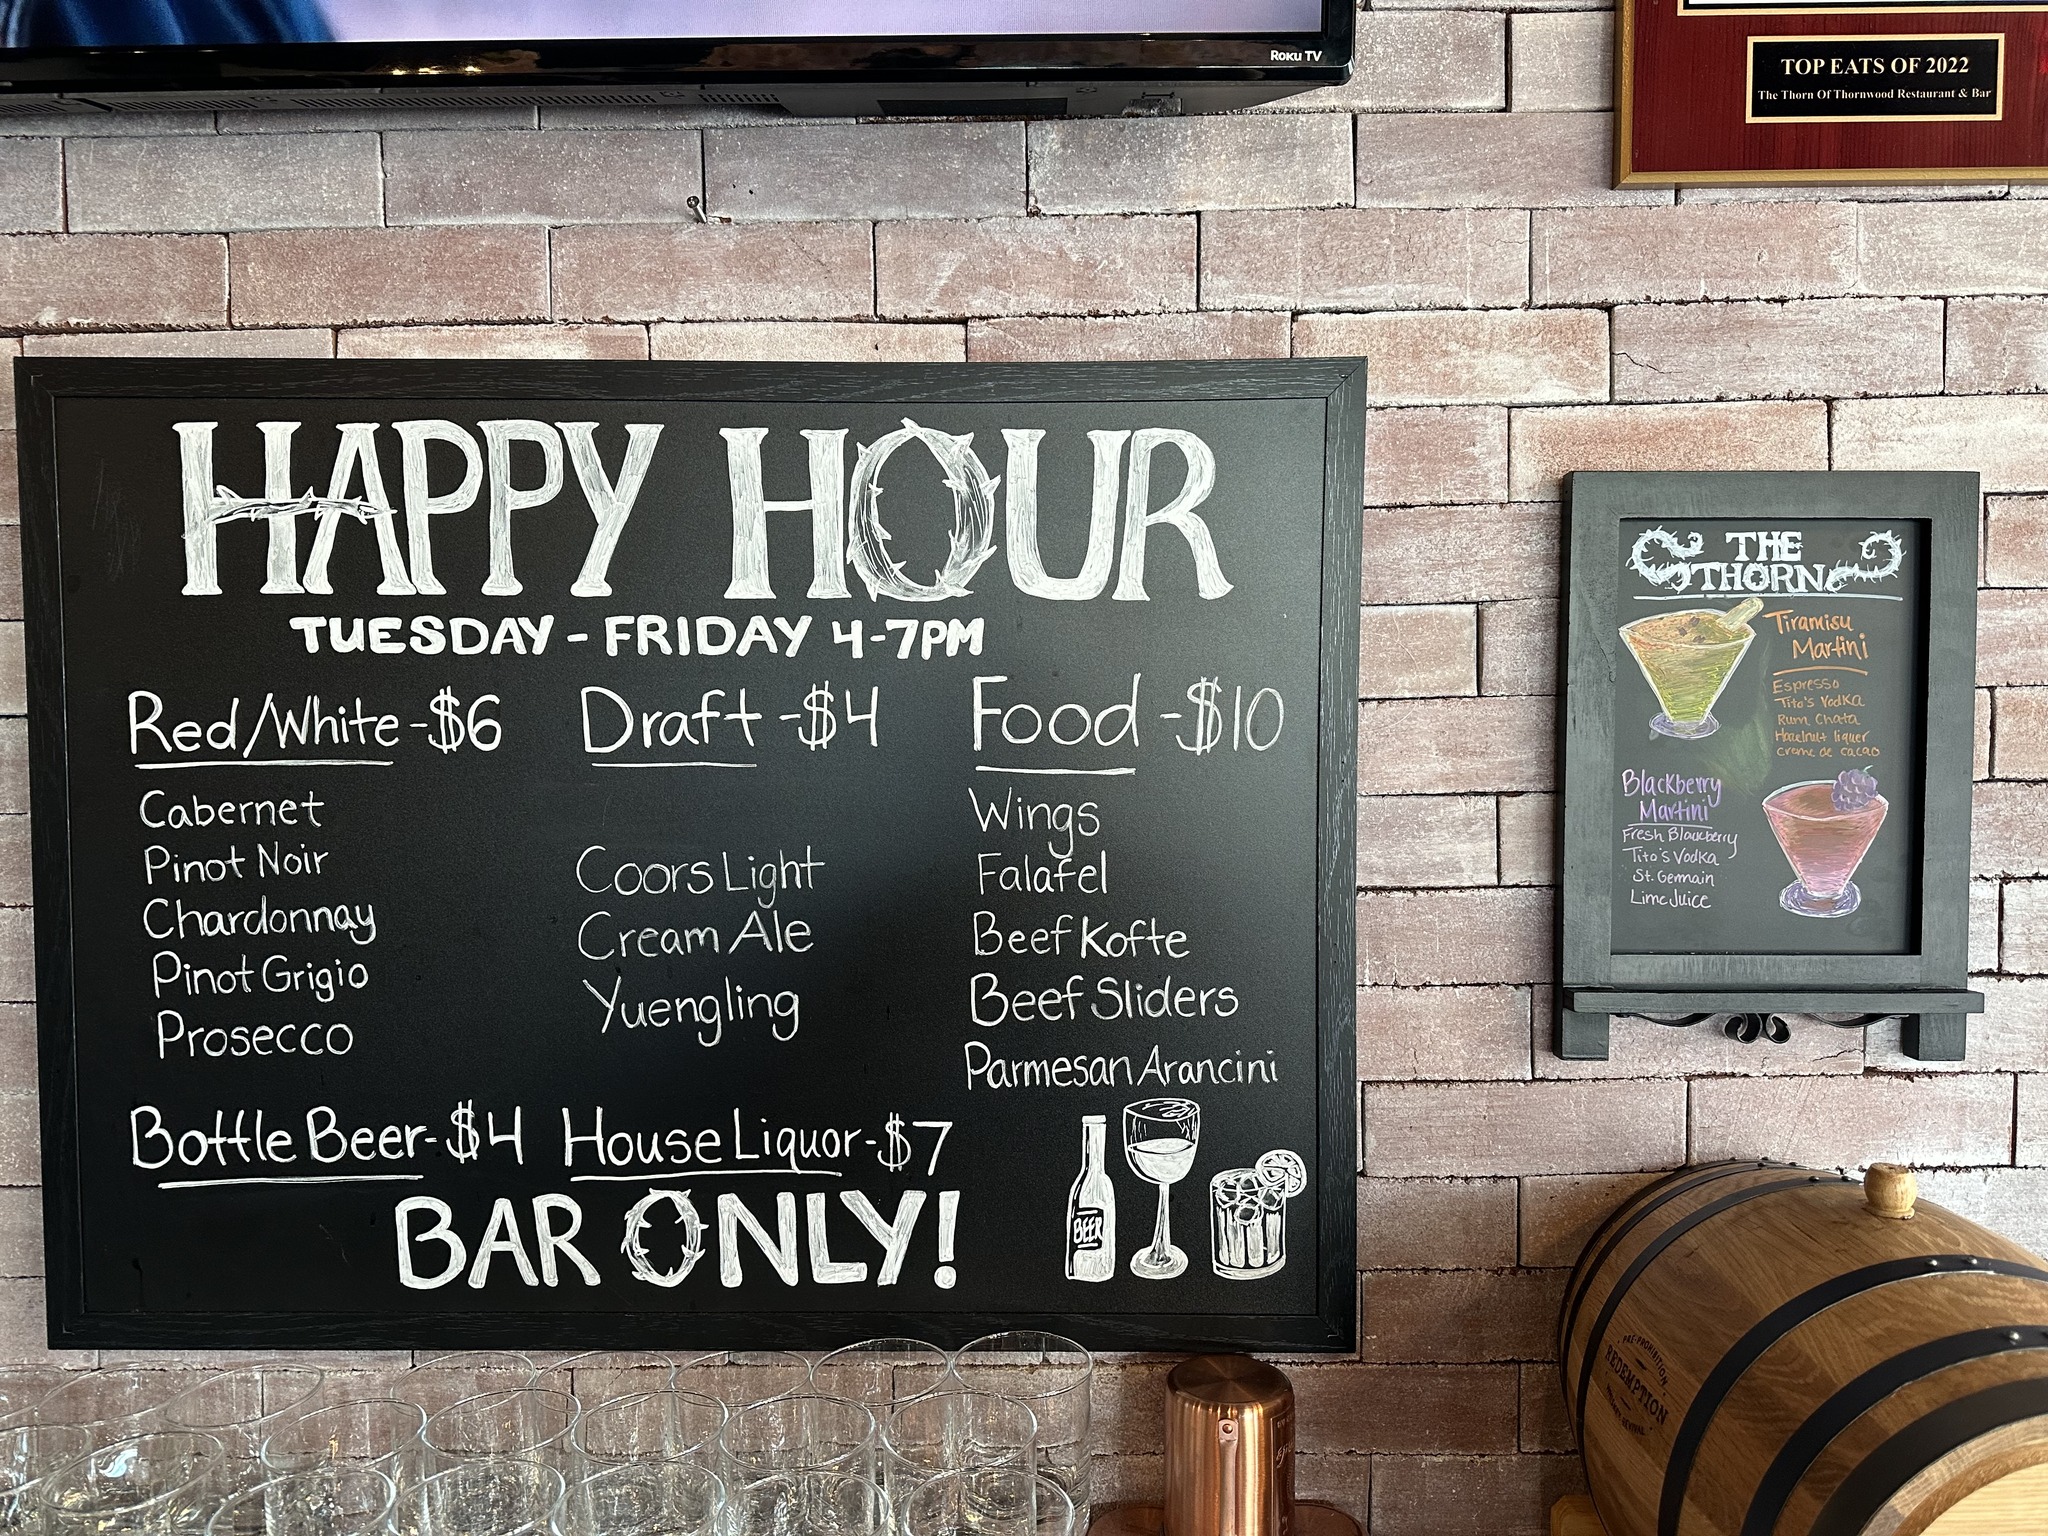 Roku TV
TOP EATS OF 2022
The Thorn Of Thornwood Restaurant & Bar
HAPPY HOUR
TUESDAY - FRIDAY 4-7PM
Red/White - $6
Cabernet
Pinot Noir
Chardonnay
Pinot Grigio
Prosecco
Draft - $4
Coors Light
Cream Ale
Yuengling
Food - $10
Wings
Falafel
Beef Kofte
Beef Sliders
Parmesan Arancini
Bottle Beer - $4
House Liquor - $7
BAR ONLY!
BEER
THE
THORN
Tiramisu
Martini
Espresso
Tito's Vodka
Rum Chata
Hazelnut liquer
Creme de cacao
Blackberry
Martini
Fresh Blackberry
Tito's Vodka
St. Germain
Lime Juice
PRE-PROHIBITION
REDEMPTION